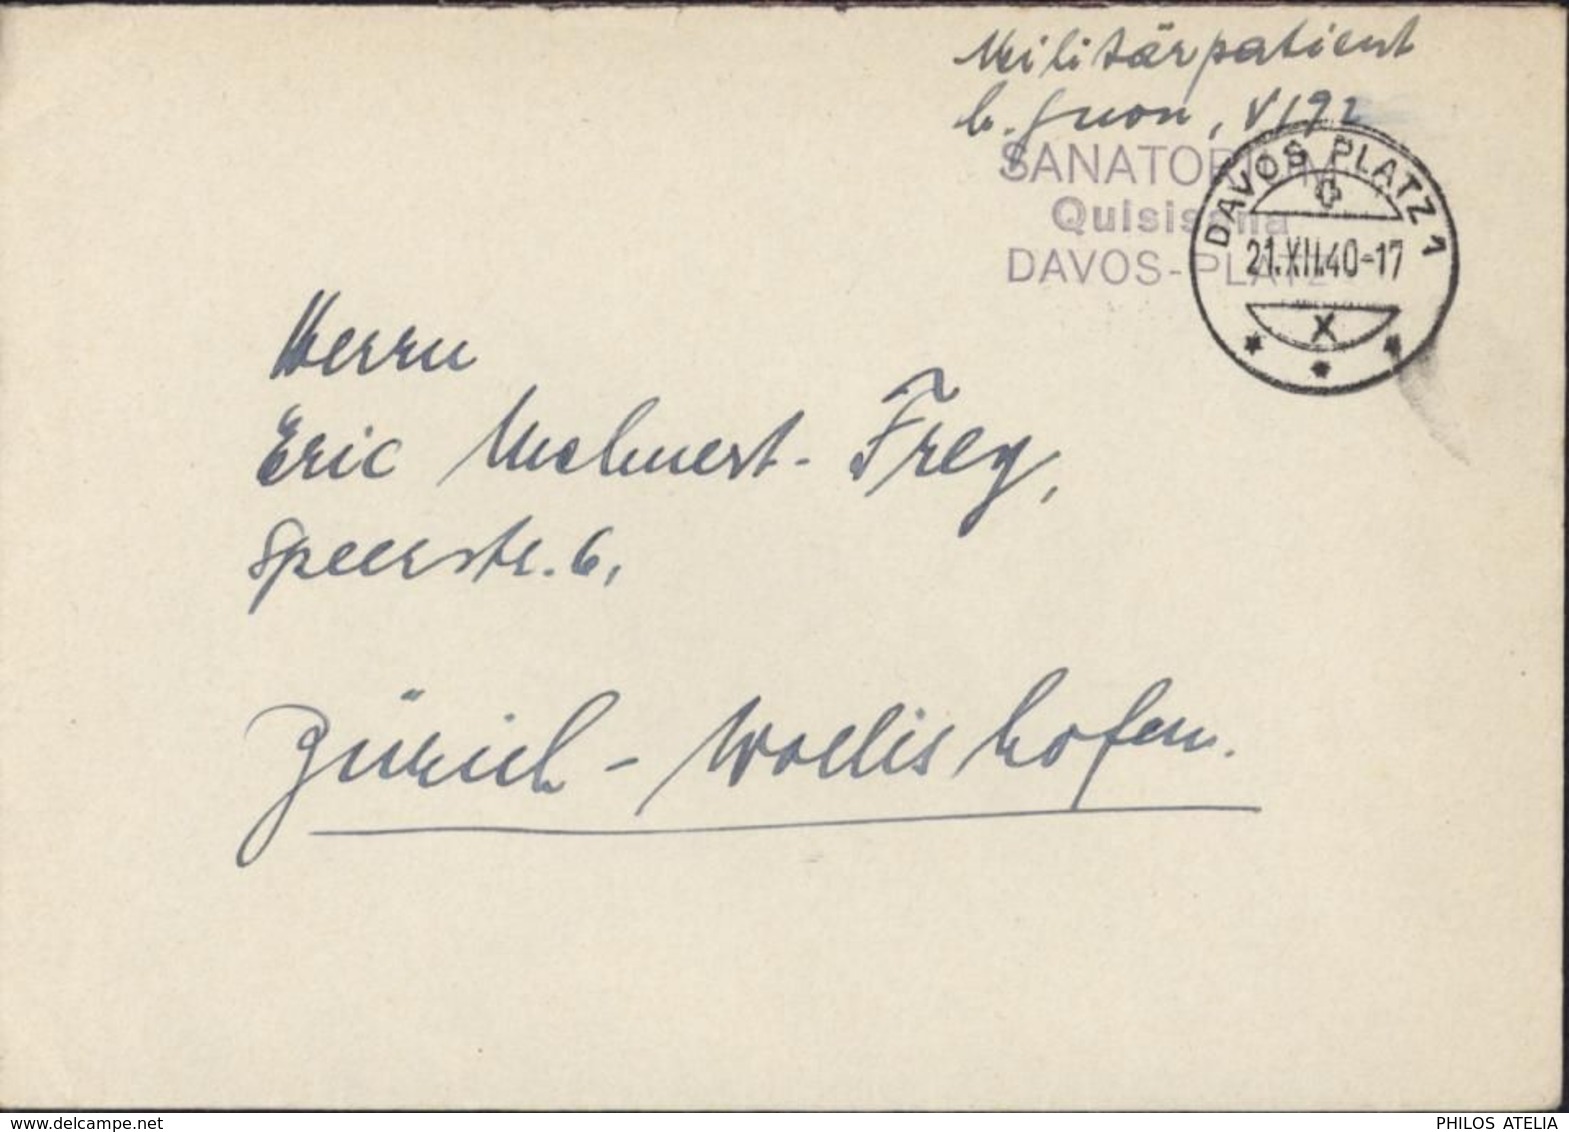 Militärpatient
V 192
SANATORIUM
Quisisana
DAVOS-PLATZ
DAVOS PLATZ 1
21.XII.40-17
X
Herrn
Eric Mehnert-Frey,
Speerstr. 6,
Zürich - Wollishofen.
www.delcampe.net
PHILOS ATELIA